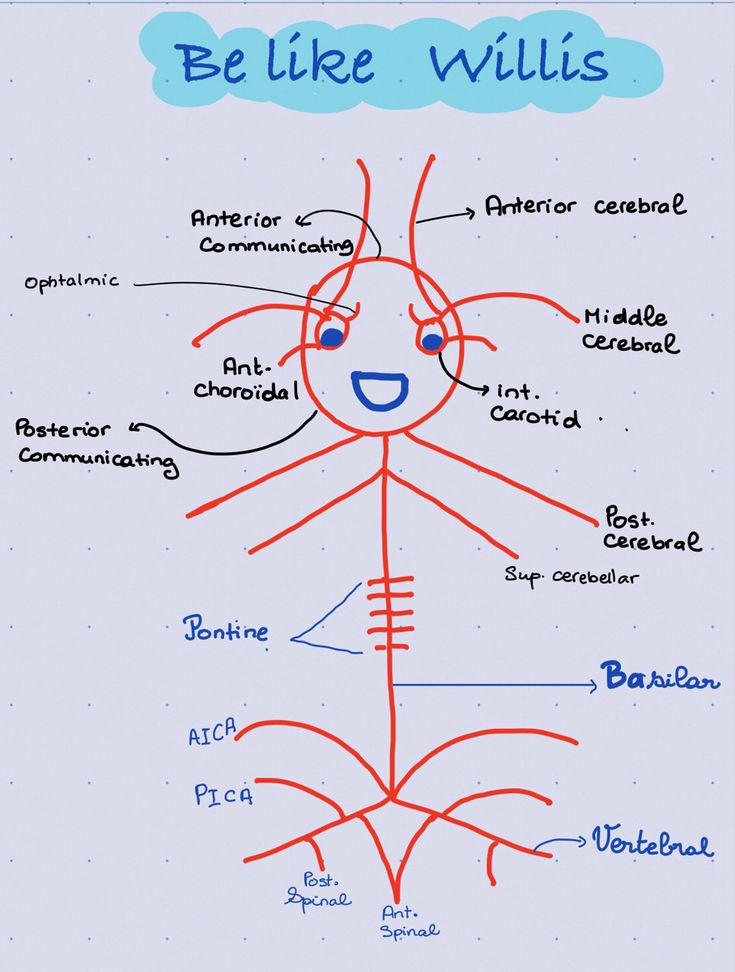 Be like Willis
Anterior
communicating
Anterior cerebral
Ophtalmic
Middle
cerebral
Ant.
choroïdal
int.
carotid
Posterior
communicating
Post.
cerebral
Sup. cerebellar
Pontine
Basilar
AICA
PICA
Vertebral
Post.
Spinal
Ant.
Spinal